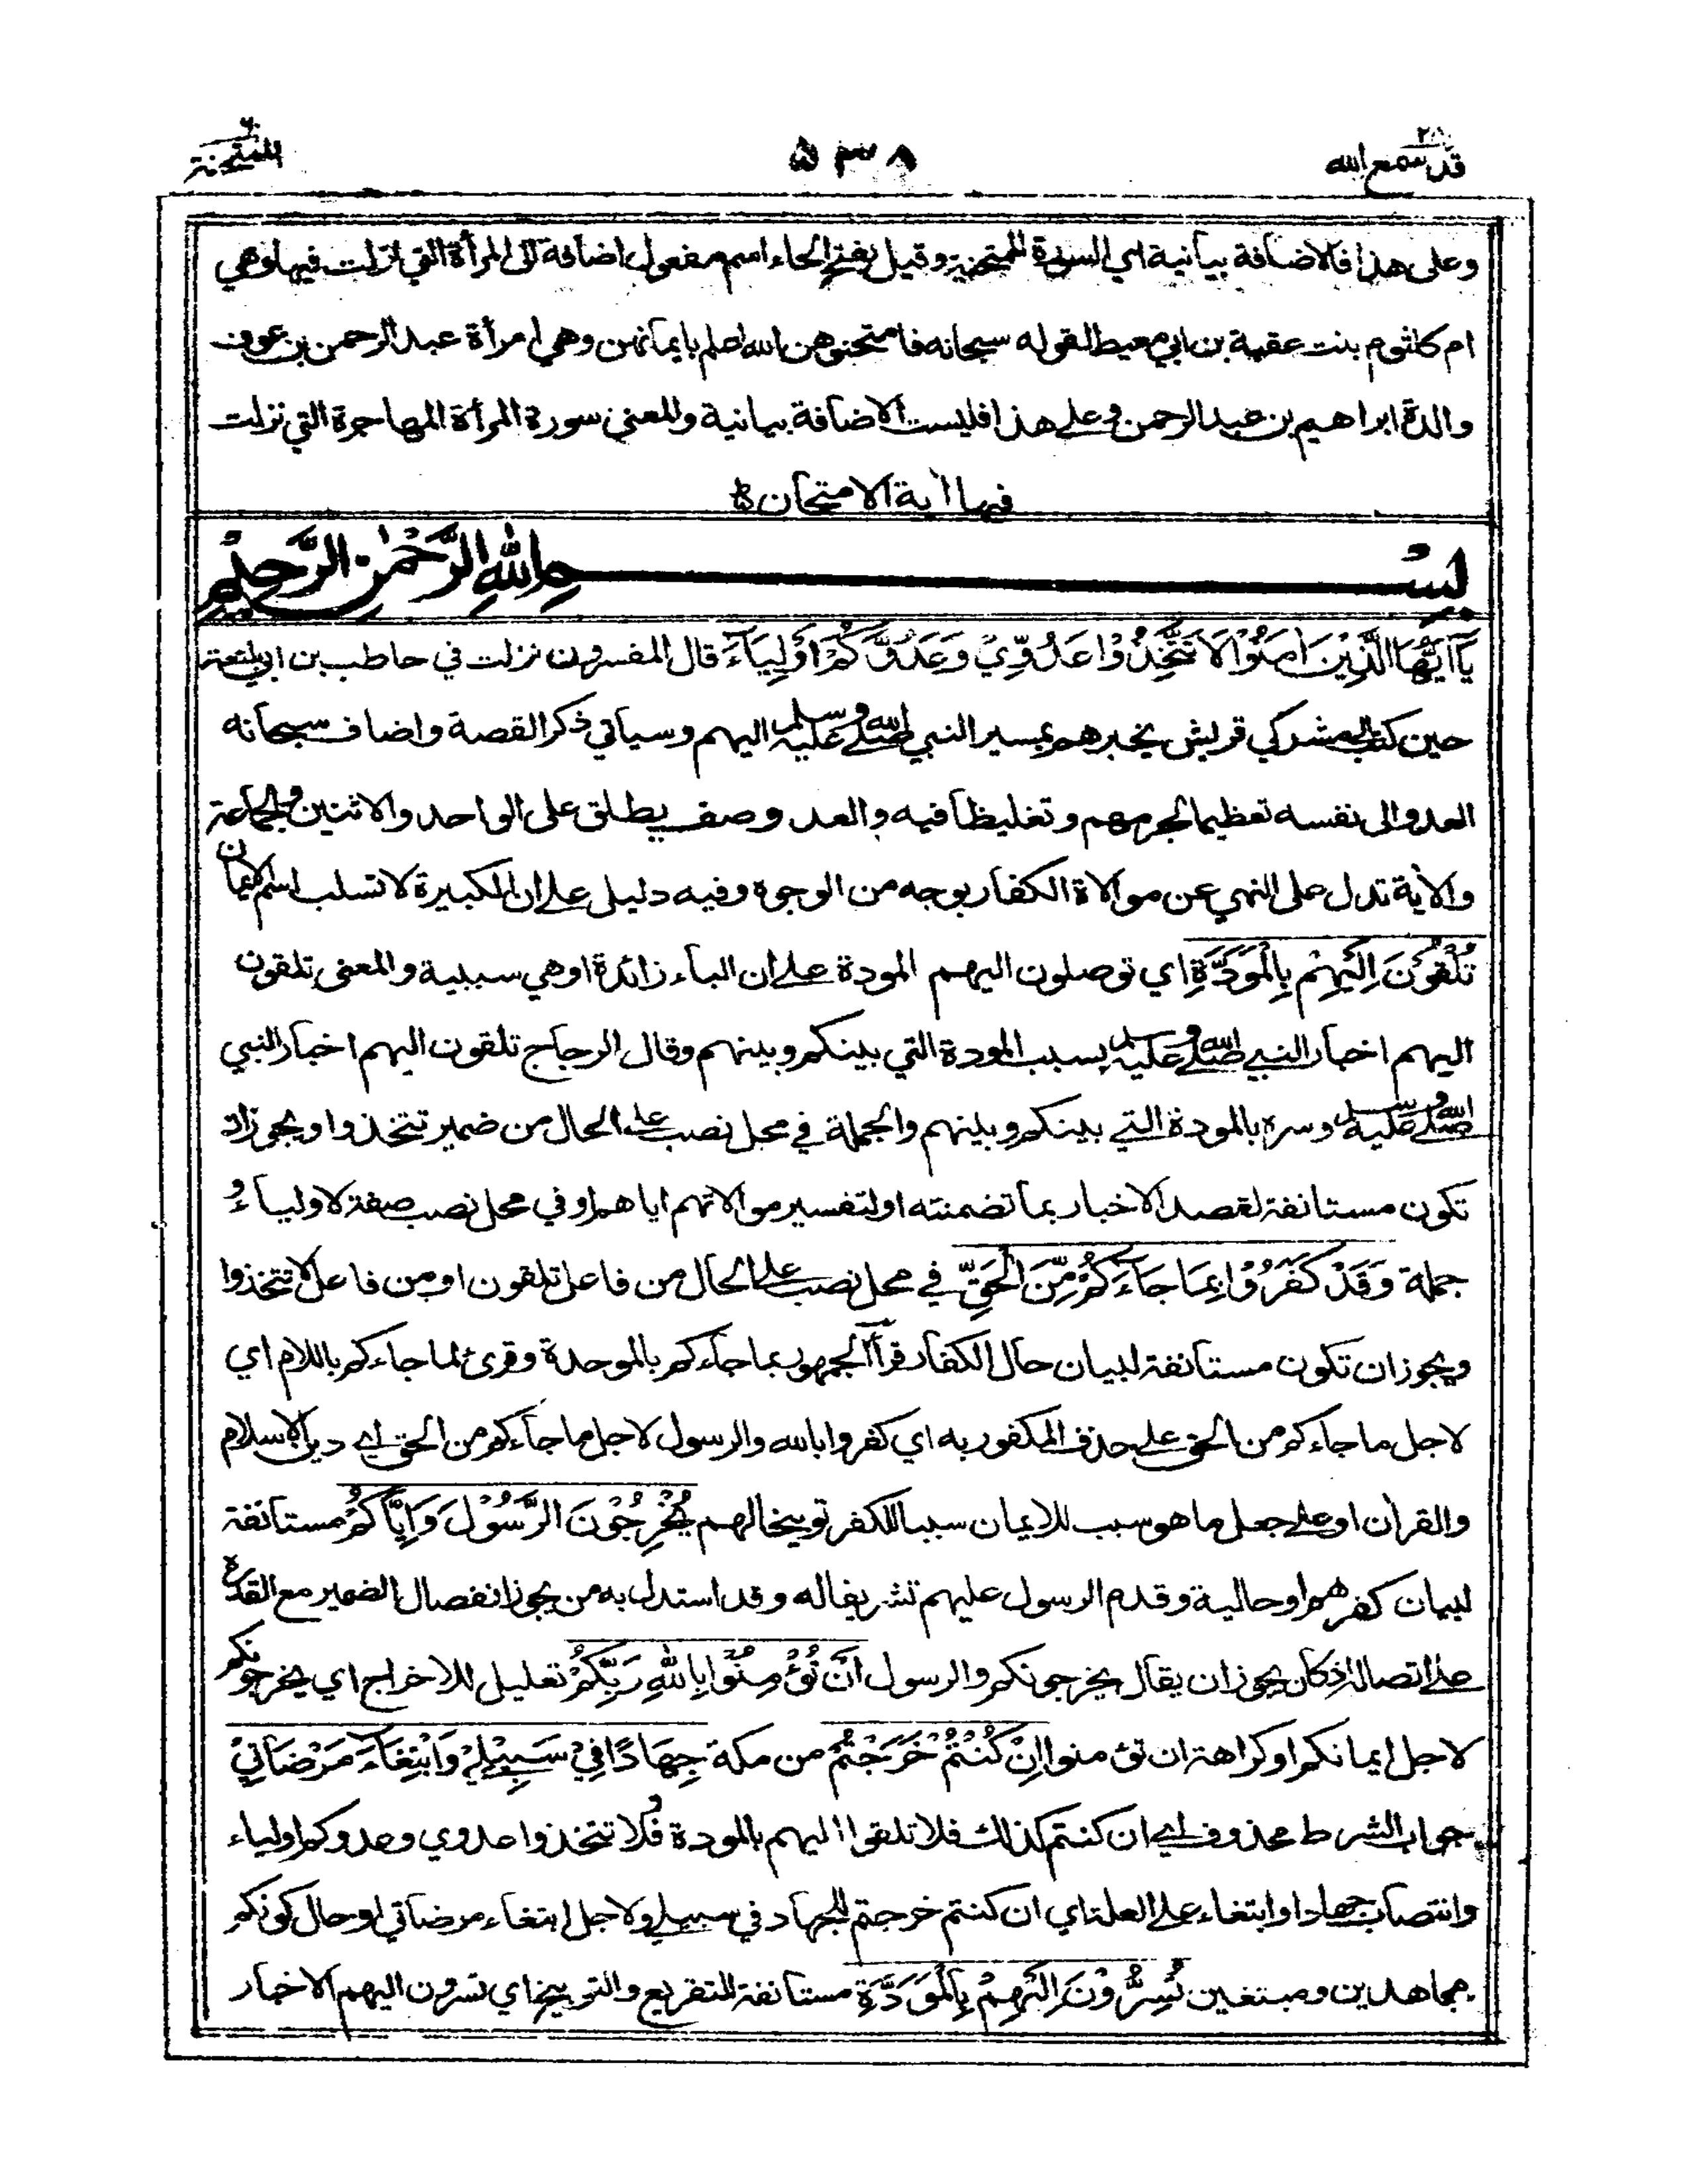 قد سمع الله ٢٨
٥٣٨
الممتحنة ٦٠
وعلى هذا فالاضافة بيانية اي السورة الممتحنة وقيل بفتح الحاء اسم مفعول اضافة الى المرأة التي نزلت فيها وهي
ام كلثوم بنت عقبة بن ابي معيط لقوله سبحانه فامتحنوهن الله اعلم بايمانهن وهي امرأة عبد الرحمن بن عوف
والدة ابراهيم بن عبد الرحمن وعلى هذا فليست الاضافة بيانية والمعنى سورة المرأة المهاجرة التي نزلت
فيها اٰية الامتحان
بِسْمِ اللهِ الرَّحْمٰنِ الرَّحِيْمِ
يَآ اَيُّهَا الَّذِيْنَ اٰمَنُوْا لَا تَتَّخِذُوْا عَدُوِّيْ وَعَدُوَّكُمْ اَوْلِيَآءَ قال المفسرون نزلت في حاطب بن ابي بلتعة
حين كتب الى مشركي قريش يخبرهم بمسير النبي صلى الله عليه وسلم اليهم وسيأتي ذكر القصة واضاف سبحانه
العدو الى نفسه تعظيما لجرمهم وتغليظا فيه والعدو وصف يطلق على الواحد والاثنين والجماعة
والاٰية تدل على النهي عن موالاة الكفار بوجه من الوجوه وفيه دليل على ان الكبيرة لا تسلب اسم الايمان
تُلْقُوْنَ اِلَيْهِمْ بِالْمَوَدَّةِ اي توصلون اليهم المودة على ان الباء زائدة او هي سببية والمعنى تلقون
اليهم اخبار النبي صلى الله عليه وسلم بسبب المودة التي بينكم وبينهم وقال الزجاج تلقون اليهم اخبار النبي
صلى الله عليه وسلم وسره بالمودة التي بينكم وبينهم والجملة في محل نصب على الحال من ضمير تتخذوا ويجوز ان
تكون مستانفة لقصد الاخبار بما تضمنته او لتفسير موالاتهم اياهم او في محل نصب صفة لاولياء و
جملة وَقَدْ كَفَرُوْا بِمَا جَآءَكُمْ مِّنَ الْحَقِّ في محل نصب على الحال من فاعل تلقون او من فاعل لا تتخذوا
ويجوز ان تكون مستانفة لبيان حال الكفار قرأ الجمهور بما جاءكم بالموحدة وقرئ لما جاءكم باللام اي
لاجل ما جاءكم من الحق على حذف المكفور به اي كفروا بالله والرسول لاجل ما جاءكم من الحق اي دين الاسلام
والقراٰن او على جعل ما هو سبب للايمان سببا للكفر توبيخا لهم يُخْرِجُوْنَ الرَّسُوْلَ وَاِيَّاكُمْ مستانفة
لبيان كفرهم او حالية وقدم الرسول عليهم تشريفا له وقد استدل به من يجوز انفصال الضمير مع القدرة
على اتصاله اذ كان يجوز ان يقال يخرجونكم والرسول اَنْ تُؤْمِنُوْا بِاللهِ رَبِّكُمْ تعليل للاخراج اي يخرجونكم
لاجل ايمانكم او كراهة ان تؤمنوا اِنْ كُنْتُمْ خَرَجْتُمْ من مكة جِهَادًا فِيْ سَبِيْلِيْ وَابْتِغَآءَ مَرْضَاتِيْ
جواب الشرط محذوف اي ان كنتم كذلك فلا تلقوا اليهم بالمودة و فلا تتخذوا عدوي وعدوكم اولياء
وانتصاب جهادا وابتغاء على العلة اي ان كنتم خرجتم للجهاد في سبيلي ولاجل ابتغاء مرضاتي او حال كونكم
مجاهدين ومبتغين تُسِرُّوْنَ اِلَيْهِمْ بِالْمَوَدَّةِ مستانفة للتقريع والتوبيخ اي تسرون اليهم الاخبار